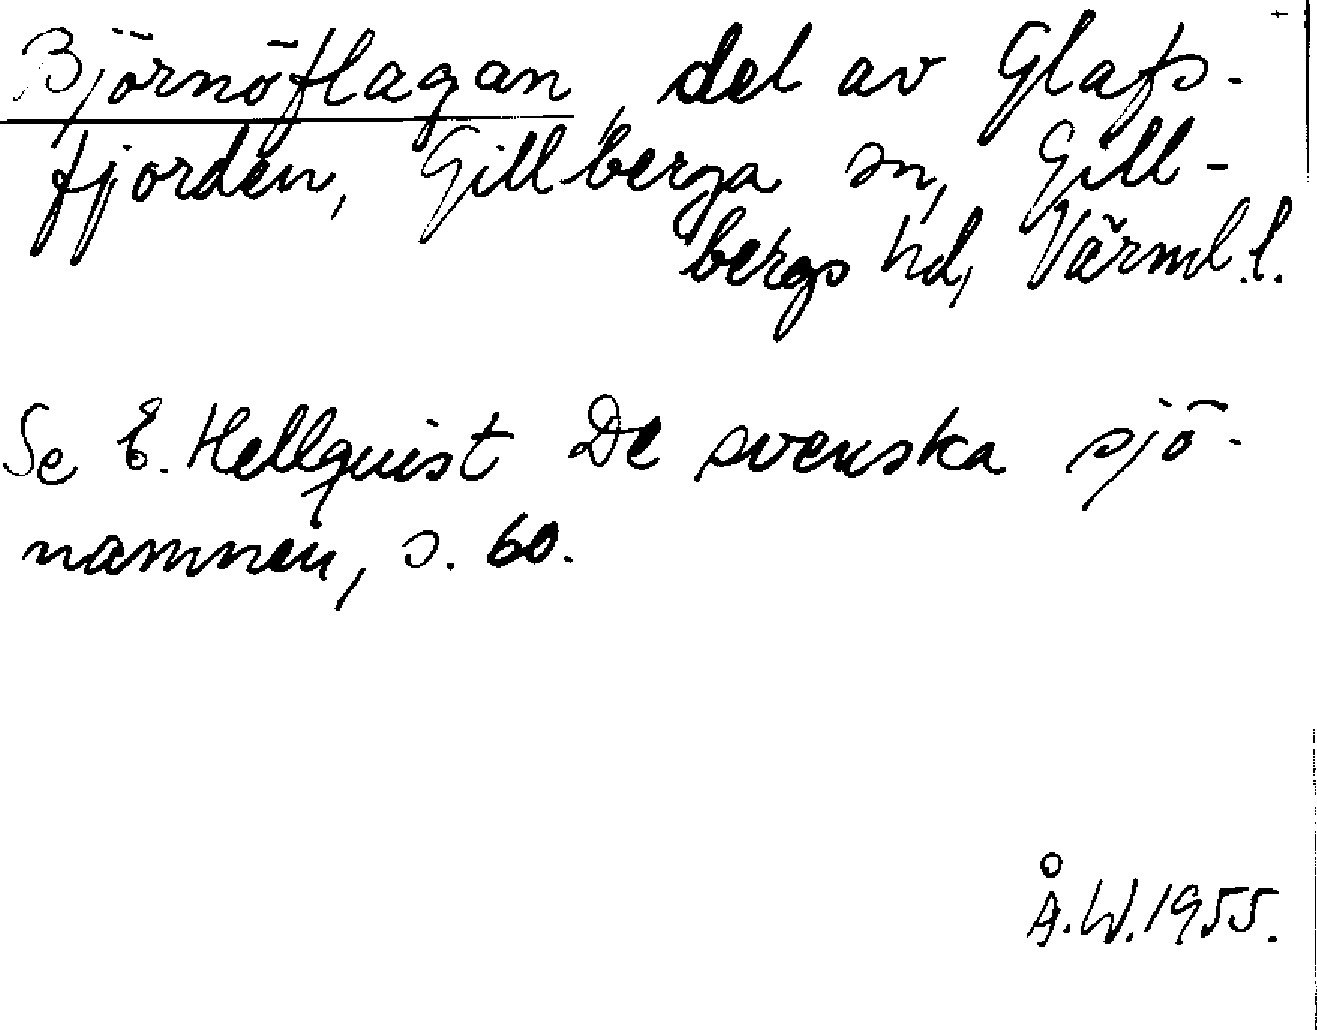 Björnöflagan, del av Glafs-
fjorden, Gillberga sn, Gill-
bergs hd, Värml. l.
Se E. Hellquist De svenska sjö-
namnen, s. 60.
Å.W. 1955.